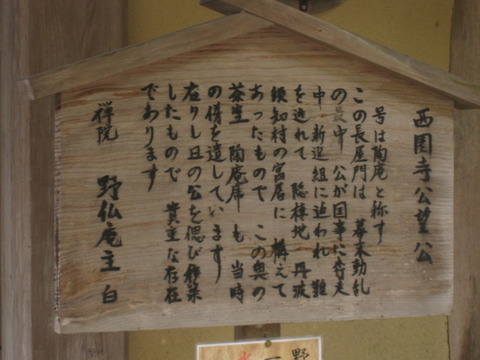 西園寺公望公
号は陶庵と称す
この長屋門は 幕末動乱
の最中 公が国事に奔走
中 新選組に追われ 難
を逃れて 隠棲地 丹波
須知村の宮居に 構えて
あったもので この奥の
茶室 陶庵庵 も当時
の侭を遺しています
在りし日の公を偲び移築
したもので 貴重な存在
であります
禅院 野仏庵主 白
野